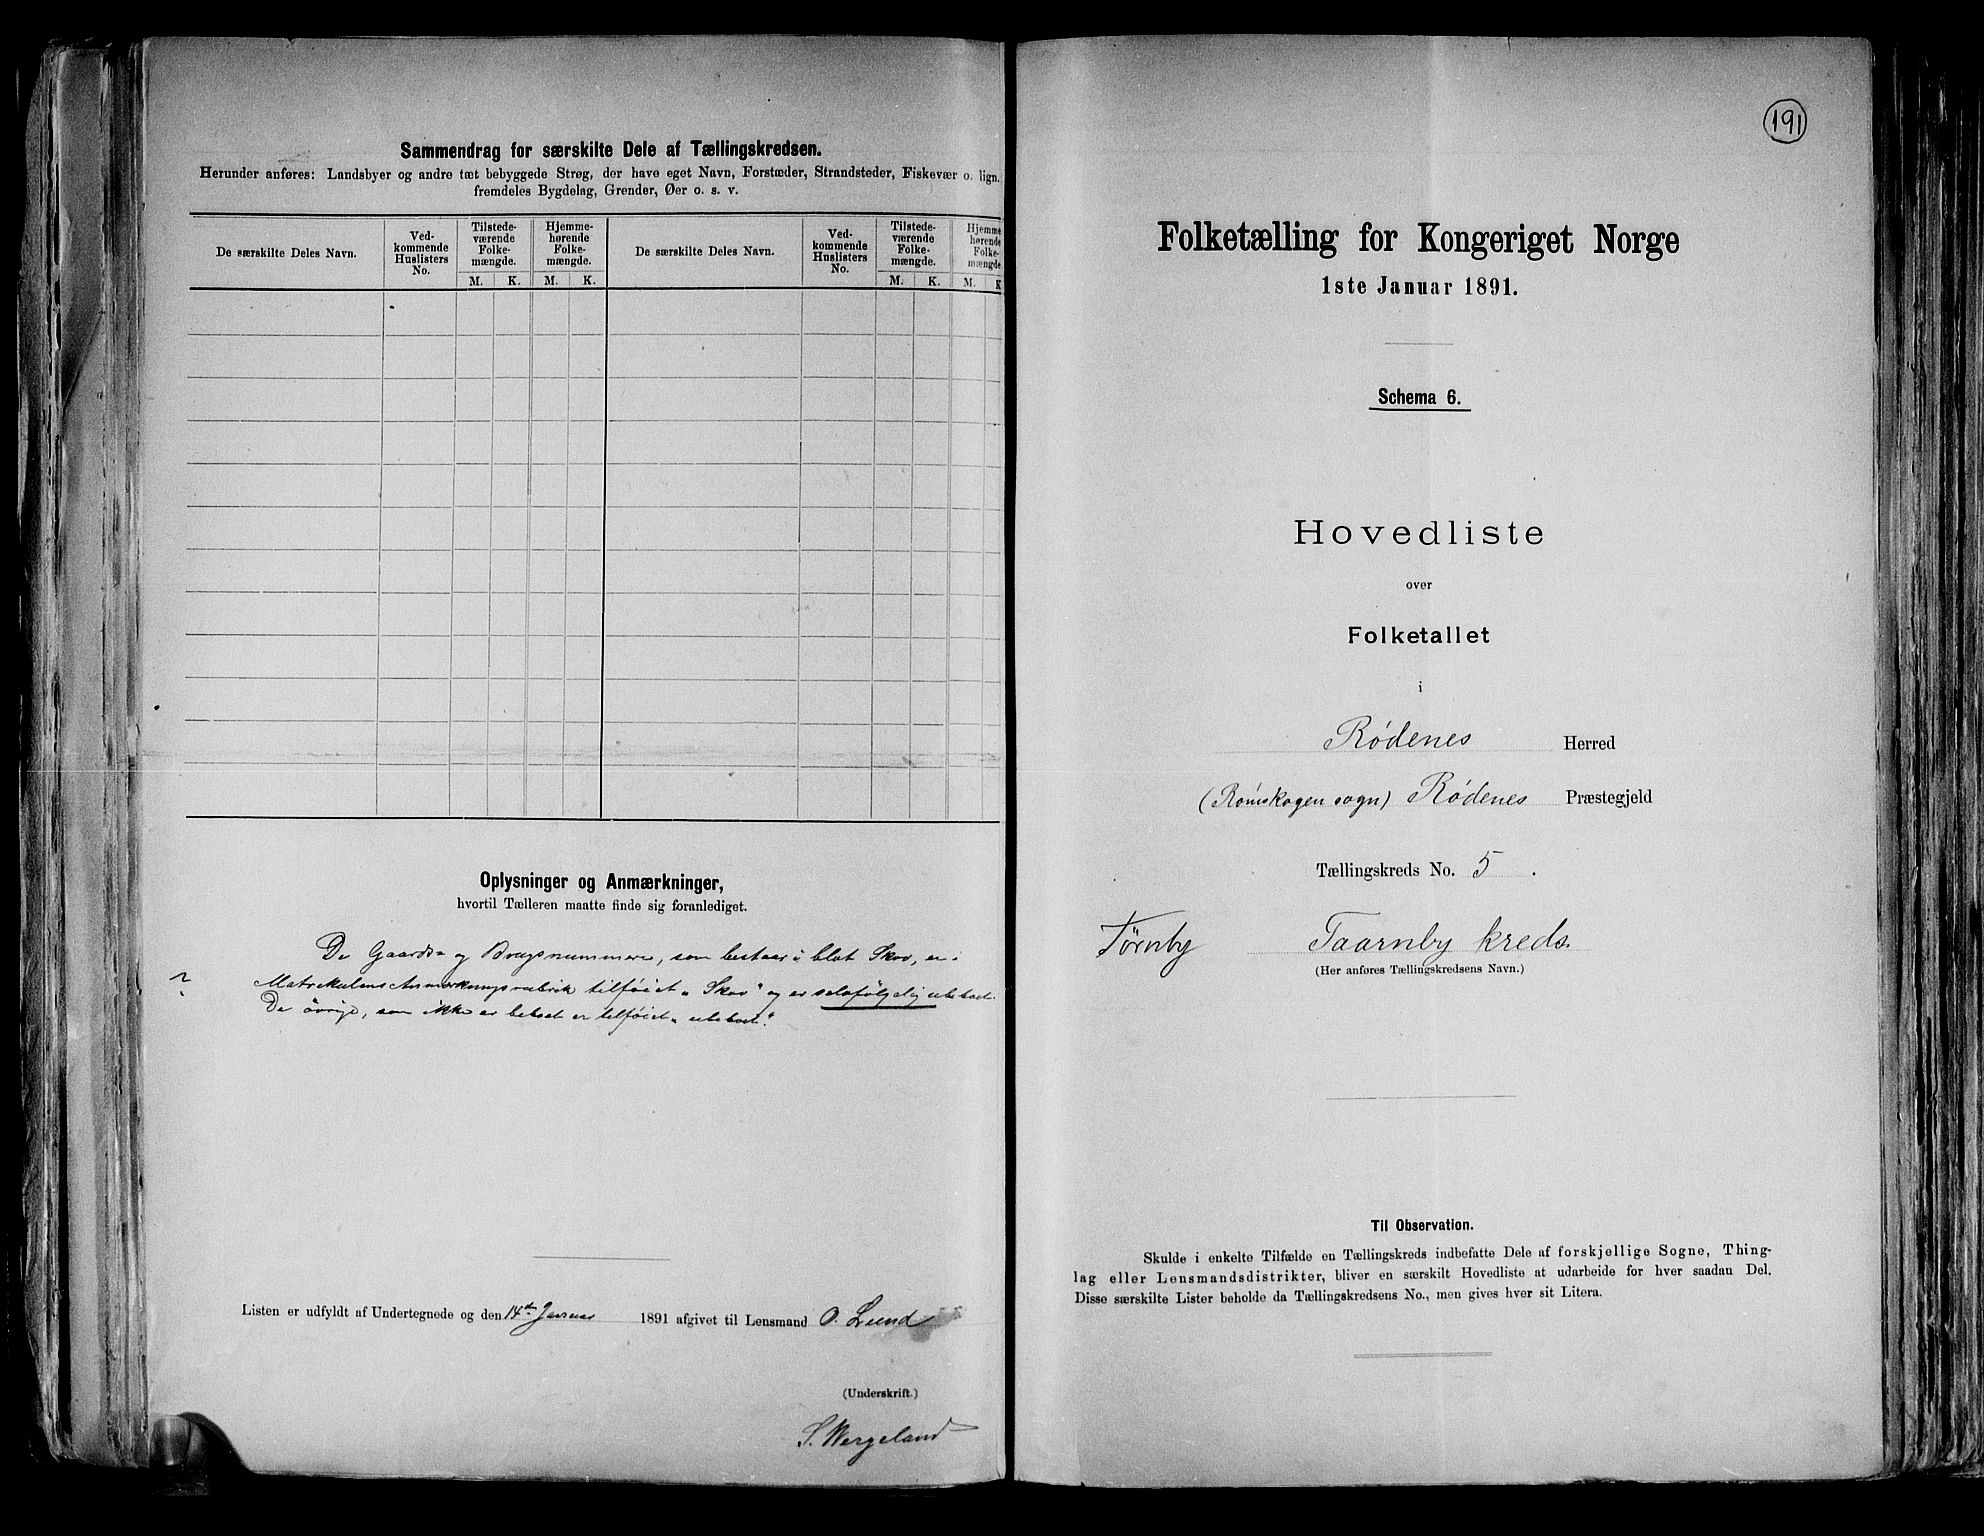 Sammendrag for særskilte Dele af Tællingskredsen.
Herunder anføres: Landsbyer og andre tæt bebyggede Strøg, der have eget Navn, Forstæder, Strandsteder, Fiskevær o. lign.
fremdeles Bygdelag, Grender, Øer o. s. v.
De særskilte Deles Navn.
Ved-
kommende
Huslisters
No.
Tilstede-
værende
Folke-
mængde.
Hjemme-
hørende
Folke-
mængde.
De særskilte Deles Navn.
Ved-
kommende
Huslisters
No.
Tilstede-
værende
Folke-
mængde.
Hjemme
hørende
Folke-
mængde
M. K. M. K. M. K. M. K
Oplysninger og Anmærkninger,
hvortil Tælleren maatte finde sig foranlediget.
De Gaards- og Brugsnummere, som bestaar i blot Skov, er i
?
Matrikulens Anmerkningsrubrik tilføiet „Skov" og er selvfølgelig ubeboet.
De øvrige, som ikke er beboet er tilføiet „ubeboet".
Listen er udfyldt af Undertegnede og den 14de Januar 1891 afgivet til Lensmand O. Lund
(Underskrift.)
S. Wergeland
191
Folketælling for Kongeriget Norge
1ste Januar 1891.
Schema 6.
Hovedliste
over
Folketallet
i
Rødenes Herred
(Rømskogen sogn) Rødenes Præstegjeld
Tællingskreds No. 5.
Tørnby Taarnby kreds.
(Her anføres Tællingskredsens Navn.)
Til Observation.
Skulde i enkelte Tilfælde en Tællingskreds indbefatte Dele af forskjellige Sogne, Thing-
lag eller Lensmandsdistrikter, bliver en særskilt Hovedliste at udarbeide for hver saadan Del.
Disse særskilte Lister beholde da Tællingskredsens No., men gives hver sit Litera.